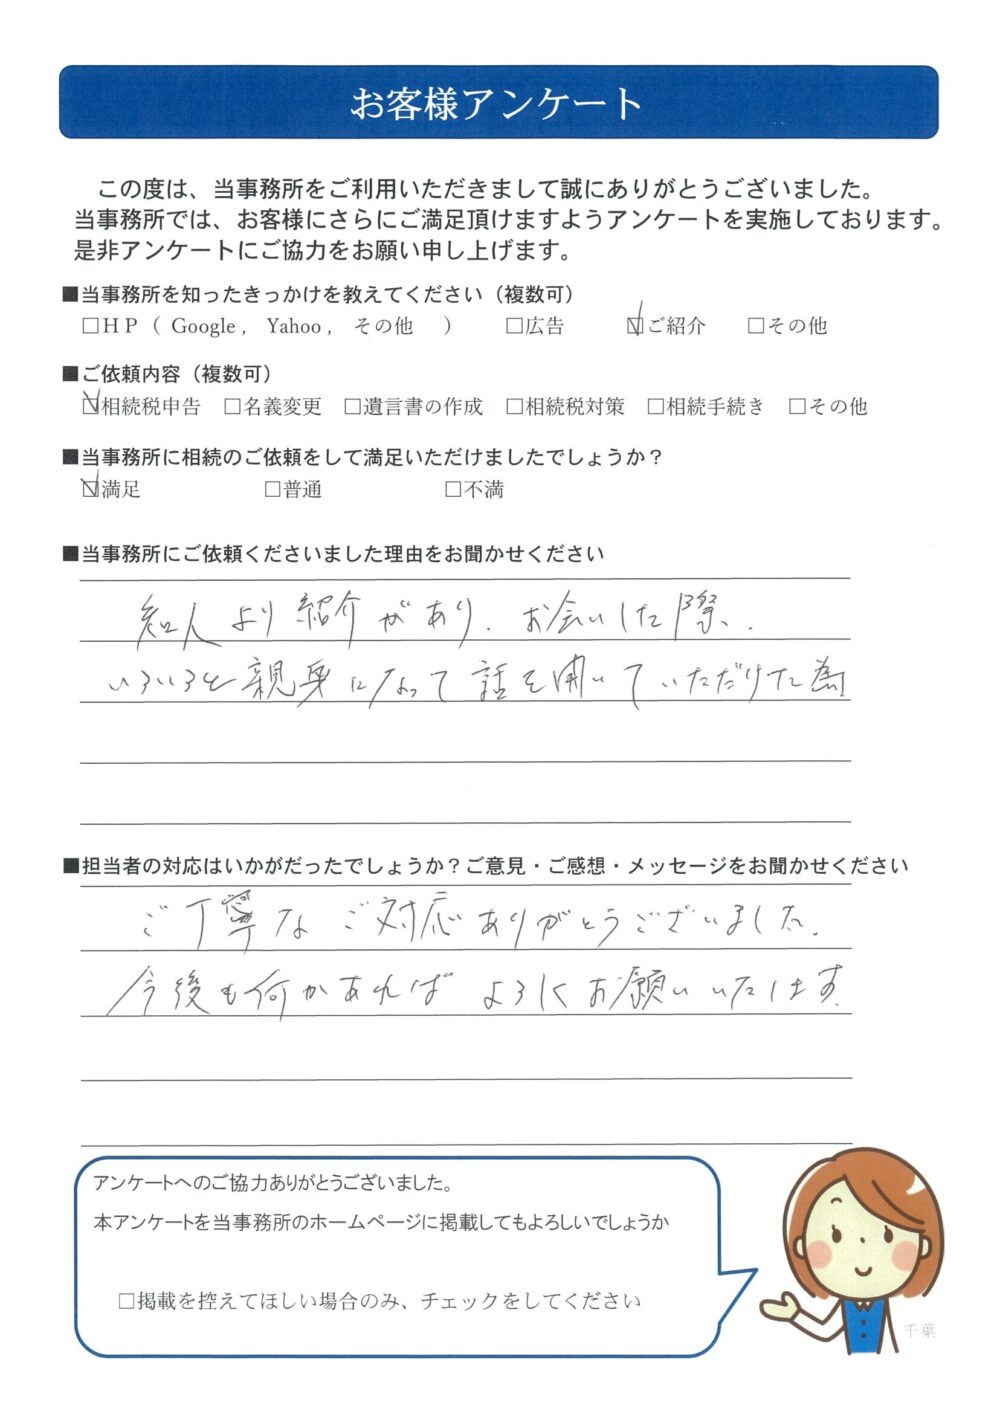 お客様アンケート
この度は、当事務所をご利用いただきまして誠にありがとうございました。
当事務所では、お客様にさらにご満足頂けますようアンケートを実施しております。
是非アンケートにご協力をお願い申し上げます。
■当事務所を知ったきっかけを教えてください（複数可）
□ＨＰ（ Google , Yahoo , その他 ） □広告 ☑ご紹介 □その他
■ご依頼内容（複数可）
☑相続税申告 □名義変更 □遺言書の作成 □相続税対策 □相続手続き □その他
■当事務所に相続のご依頼をして満足いただけましたでしょうか？
☑満足 □普通 □不満
■当事務所にご依頼くださいました理由をお聞かせください
知人より紹介があり、お会いした際、
いろいろと親身になって話を聞いていただけた為
■担当者の対応はいかがだったでしょうか？ご意見・ご感想・メッセージをお聞かせください
ご丁寧なご対応ありがとうございました。
今後も何かあればよろしくお願いいたします。
アンケートへのご協力ありがとうございました。
本アンケートを当事務所のホームページに掲載してもよろしいでしょうか
□掲載を控えてほしい場合のみ、チェックをしてください
千葉